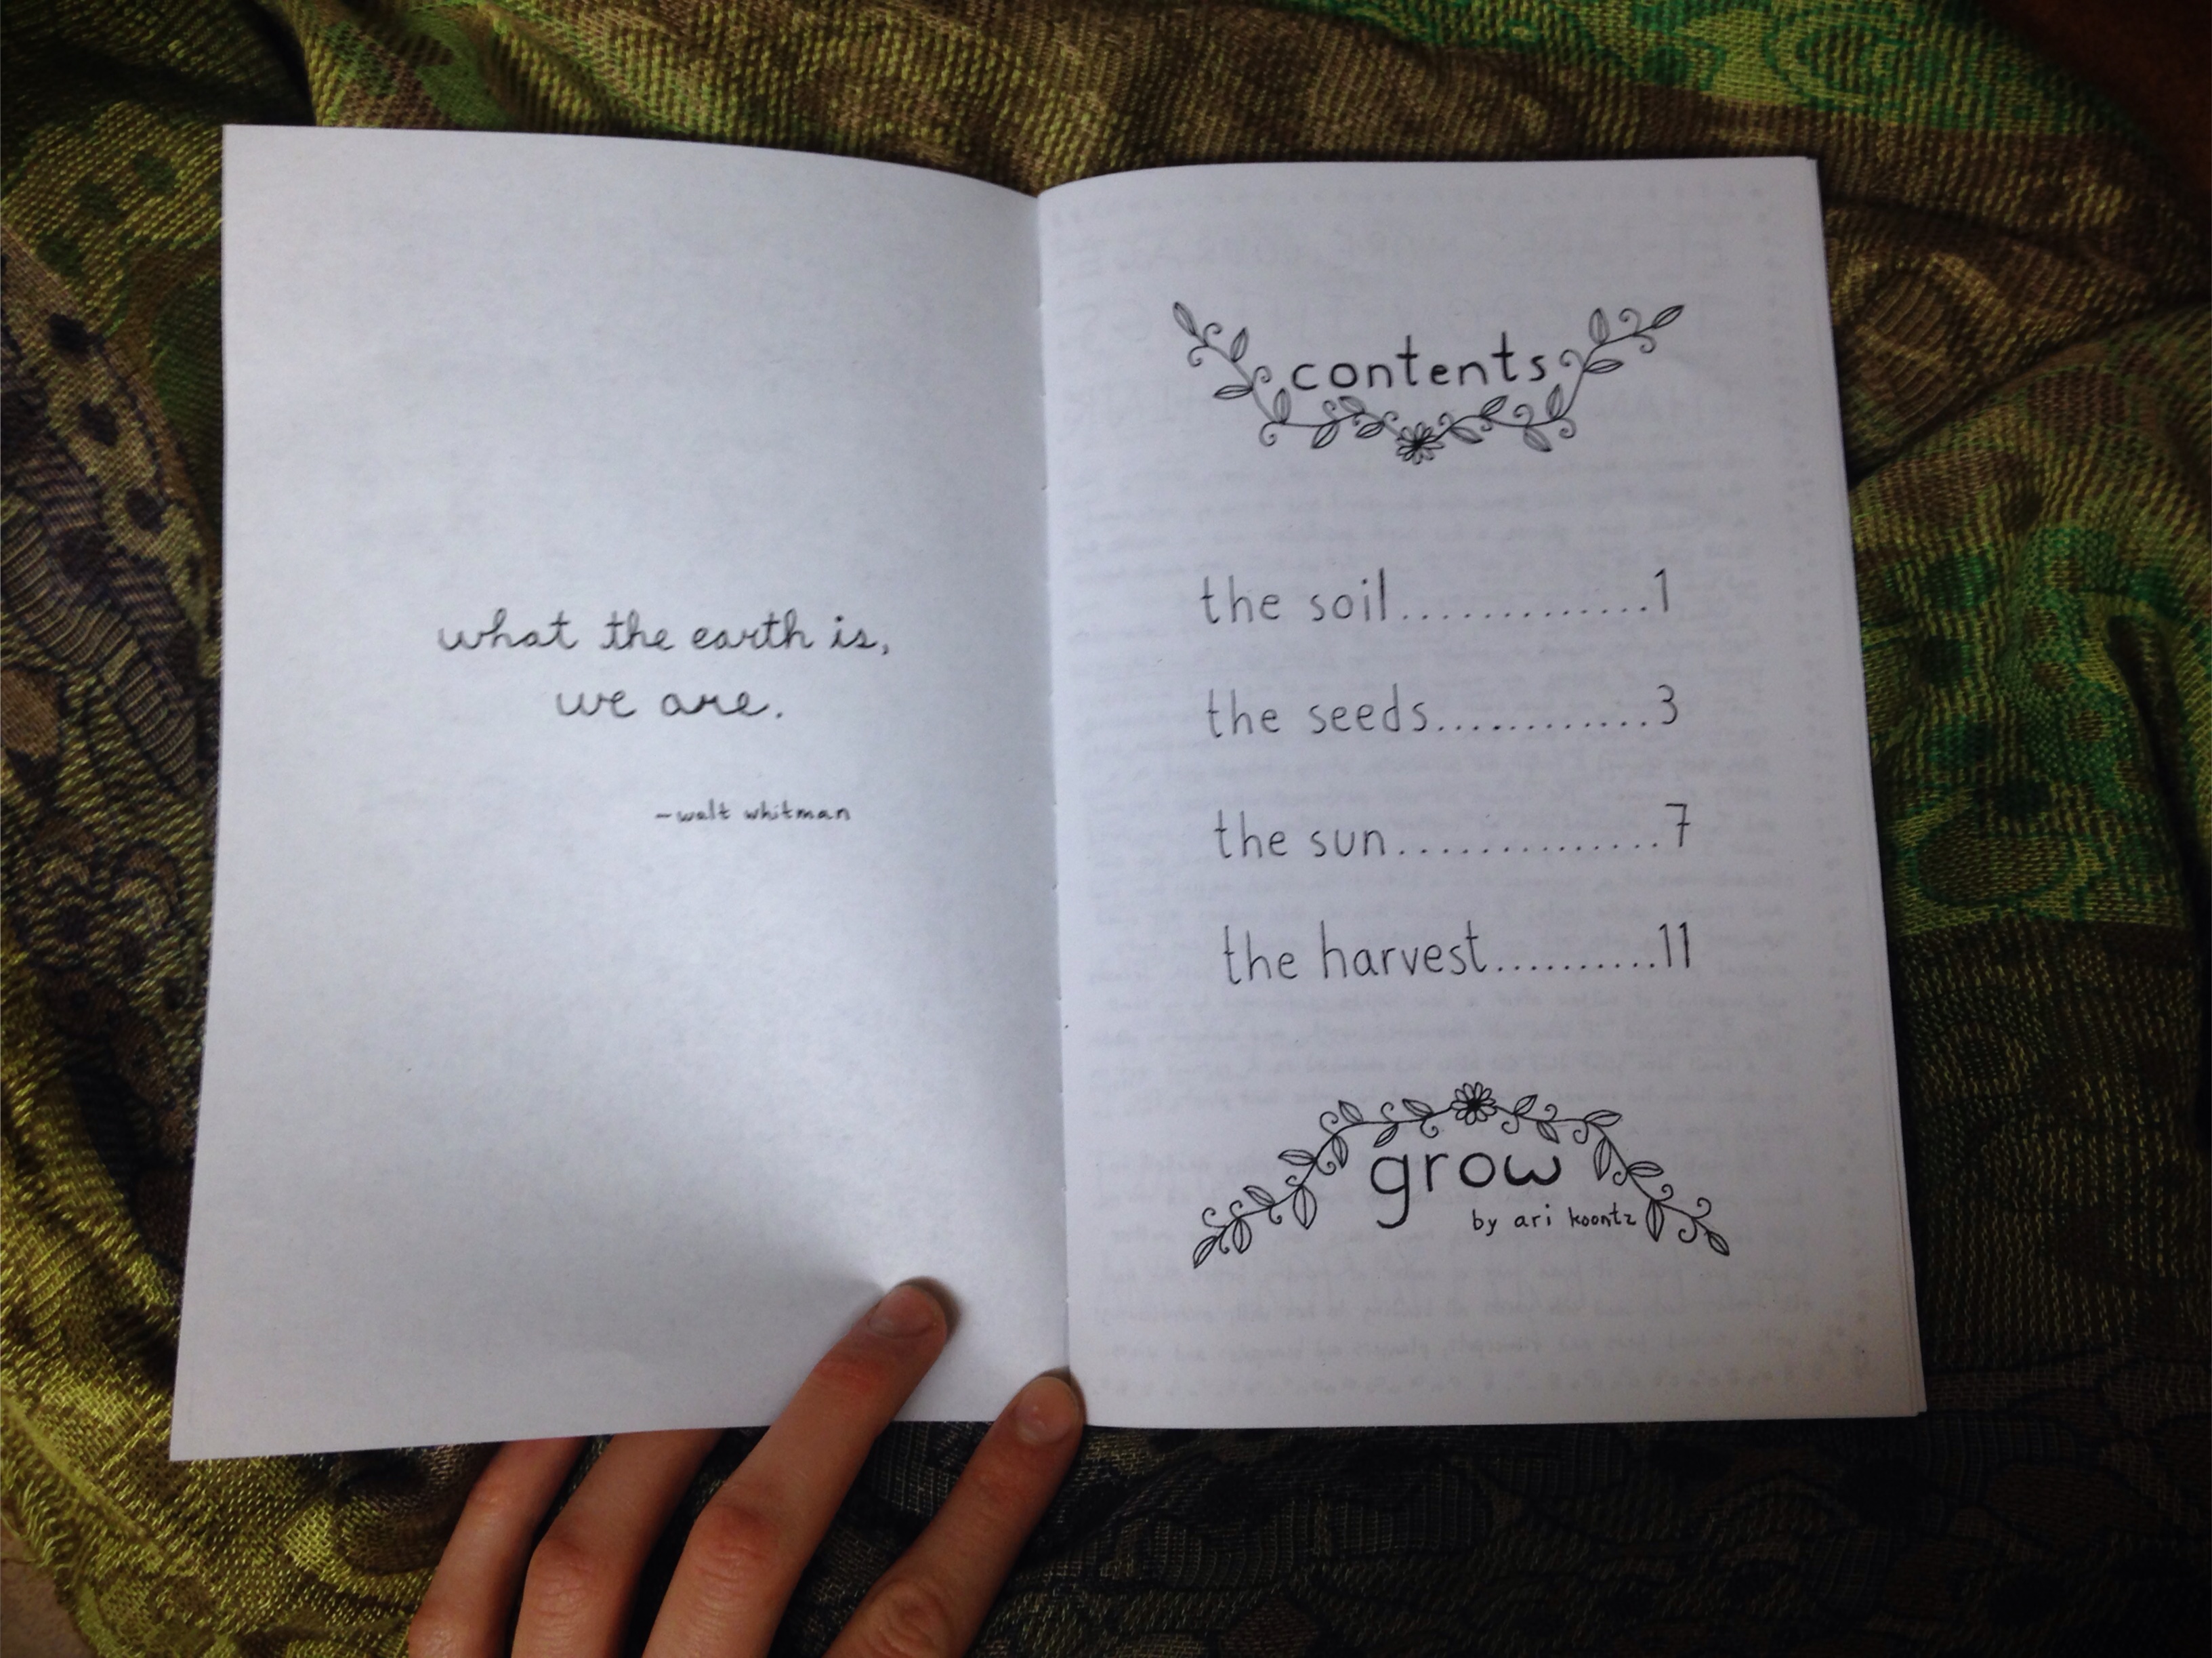 what the earth is,
we are.
-walt whitman
contents
the soil.............1
the seeds............3
the sun..............7
the harvest..........11
grow
by ari koontz